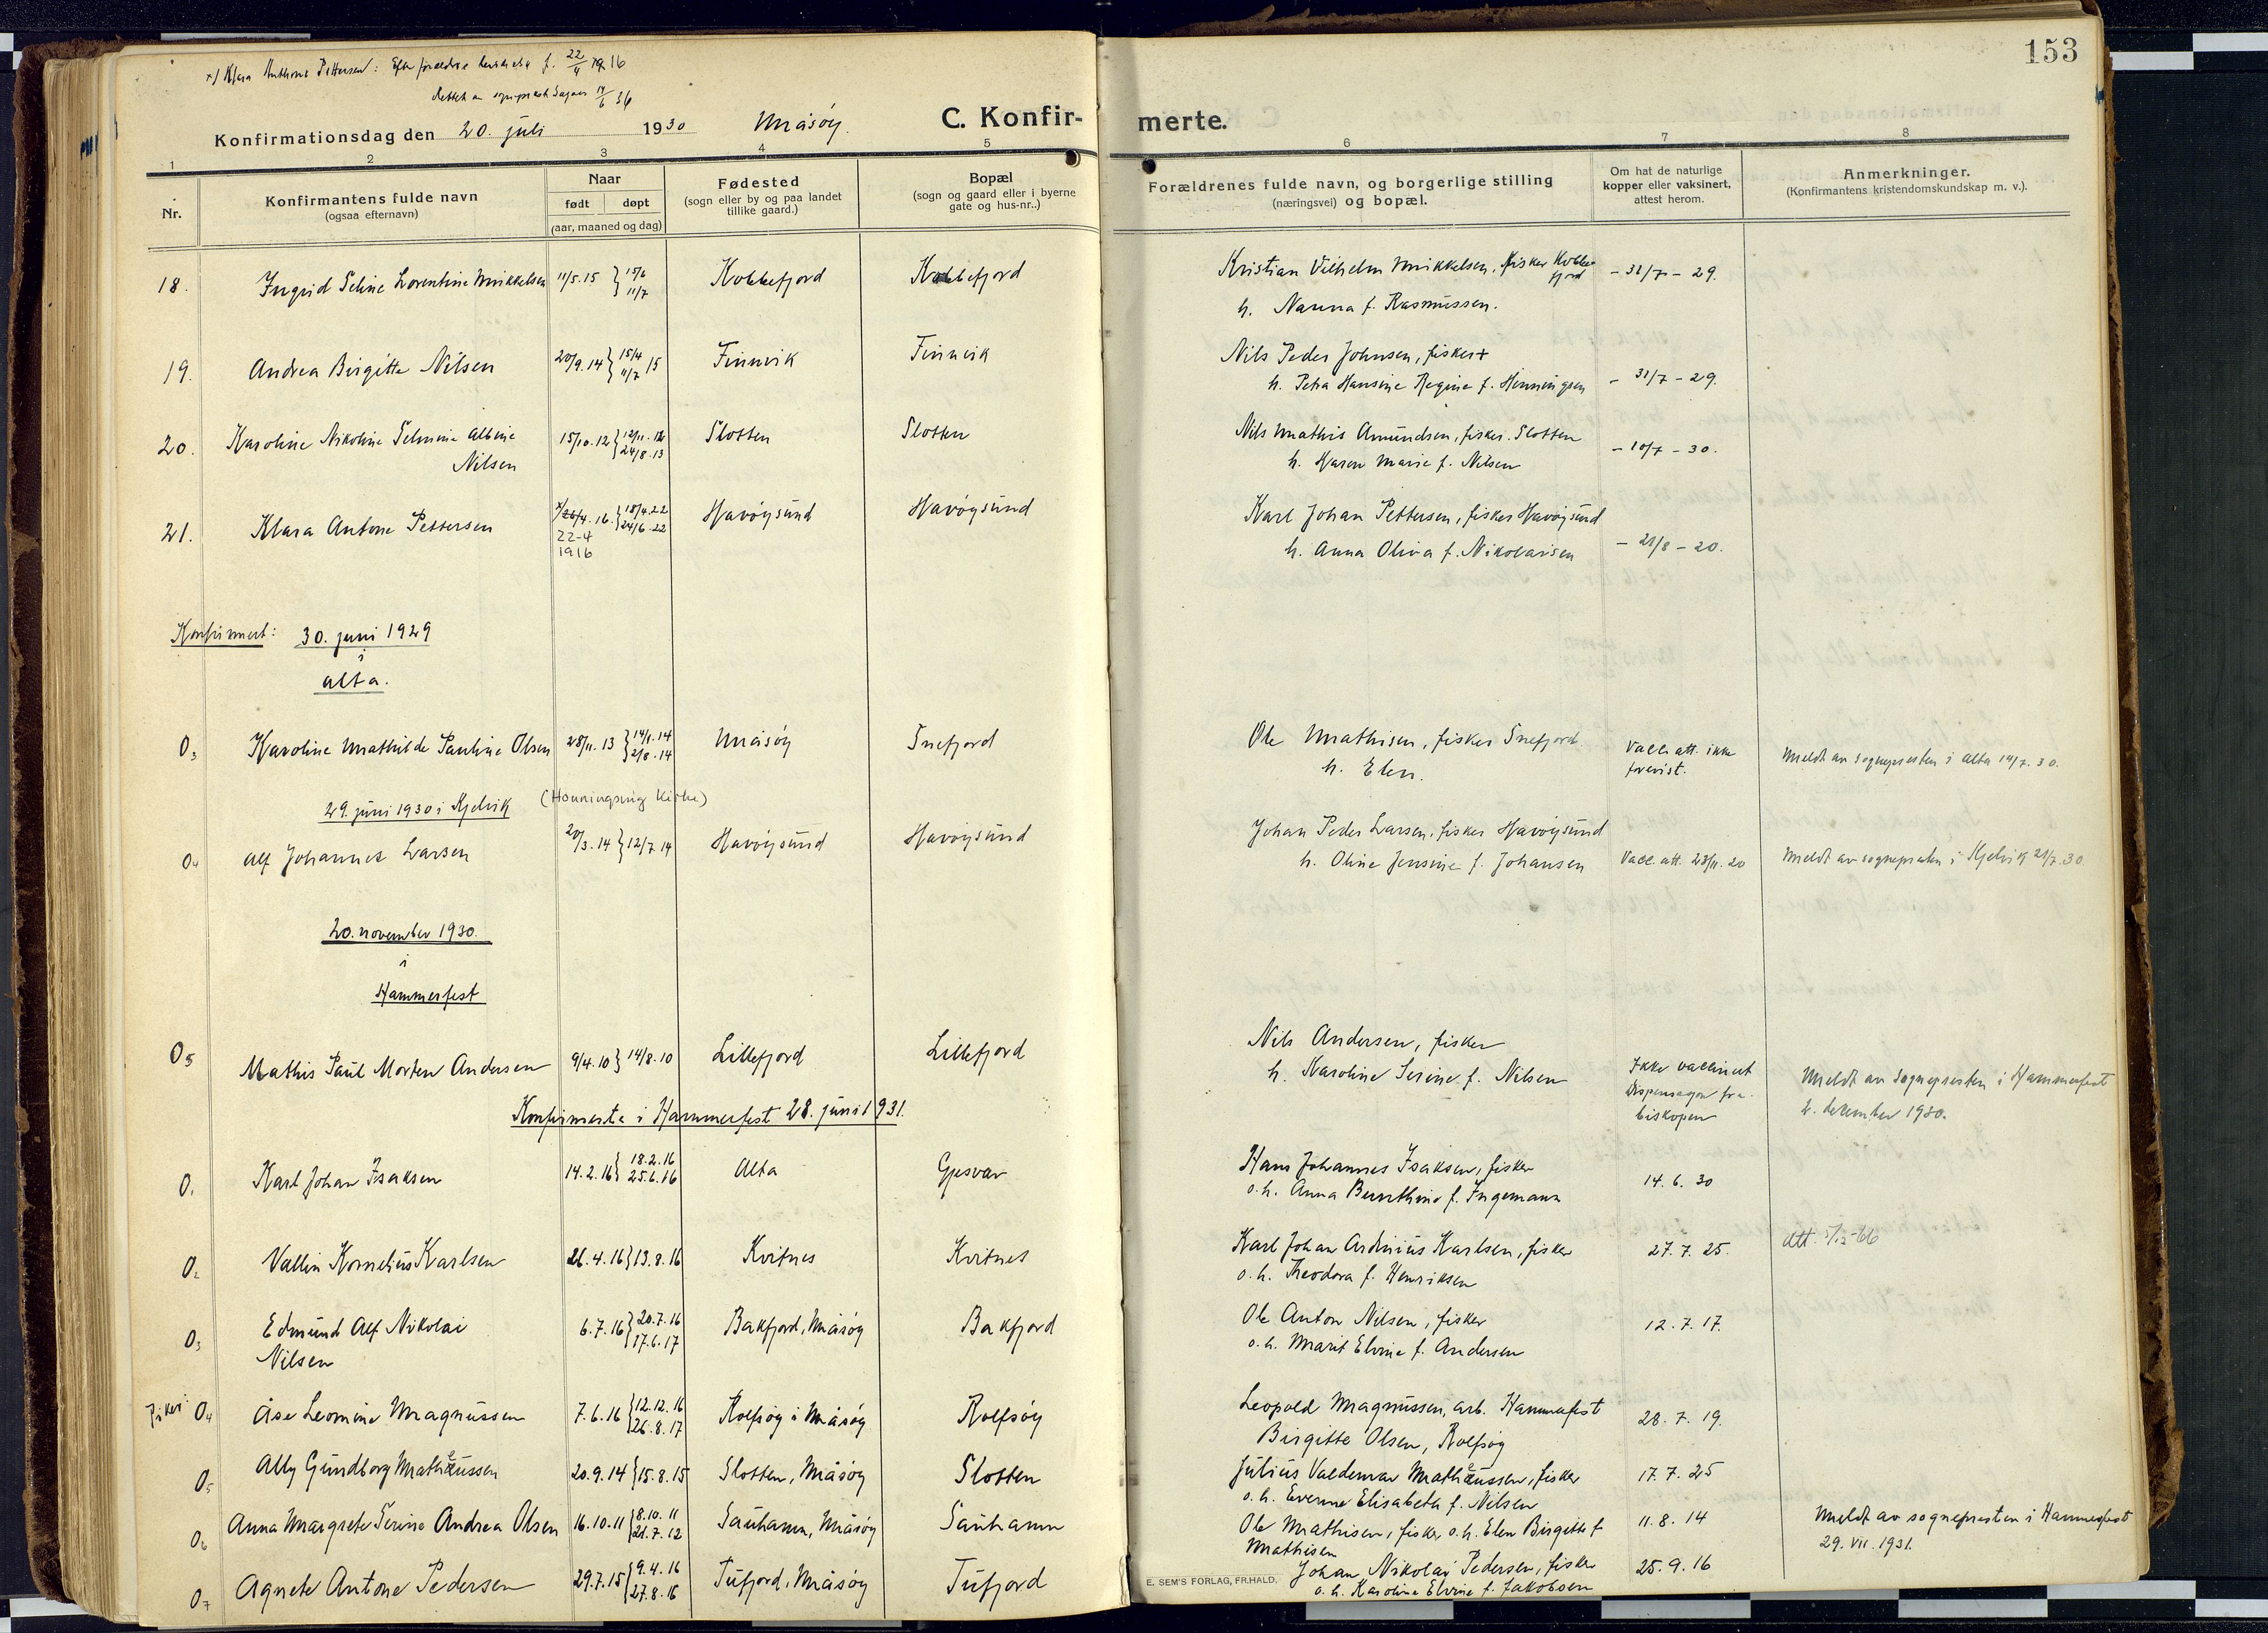 153
x/ Klara Anthone Pettersen: Efter forældre f. 22/4 1916
Rettet av sogneprest 6 36
Konfirmationsdag den 20. juli 1930 Måsöy. C. Konfir-merte.
1 2 3 4 5 6 7 8
Nr. Konfirmantens fulde navn (ogsaa efternavn) Naar født døpt (aar, maaned og dag) Fødested (sogn eller by og paa landet tillike gaard.) Bopæl (sogn og gaard eller i byerne gate og hus-nr..) Forældrenes fulde navn, og borgerlige stilling (næringsvei) og bopæl. Om hat de naturlige kopper eller vaksinert, attest herom. Anmerkninger. (Konfirmantens kristendomskundskap m. v.).
18. Ingrid Seline Lorentine Mikkelsen 11/5.15 } 15/6 11/7 Kobbefjord Kobbefjord Kristian Vilhelm Mikkelsen, fisker Kobbefjord – 31/7 – 29.
h. Nanna f. Rasmussen.
19. Andrea Birgitte Nilsen 20/9.14 } 15/4 11/7 15 Finnvik Finnvik Nils Peder Johnsen, fisker +
h. Petra Hansine Regine f. Henningsen – 31/7 – 29.
20. Karoline Nikoline Selmine Albine Nilsen 15/10.12 } 12/11.12 24/8.13 Slotten Slotten Nils Mathis Amundsen, fisker. Slotten – 10/7 – 30.
h. Karen Marie f. Nilsen
21. Klara Antone Pettersen x/26/4.16. } 18/4.22 24/6.22 Havöysund Havöysund Karl Johan Pettersen, fisker Havöysund
22-4
1916
h. Anna Oliva f. Nikolaisen – 21/8 – 20.
Konfirmert: 30. juni 1929
i
Alta.
O3 Karoline Mathilde Pauline Olsen 28/11.13 } 14/1.14 2/8.14 Måsöy Snefjord Ole Mathisen, fisker Snefjord.
h. Elen. Vacc. att. ikke forevist. Meldt av sognepresten i Alta 14/7.30.
29. juni 1930 i Kjelvik (Honningsvåg kirke)
O4 Alf Johannes Larsen 20/3.14 } 12/7.14 Havöysund Havöysund Johan Peder Larsen, fisker Havöysund
h. Oline Jensine f. Johansen Vacc. att. 23/11.20 Meldt av sognepresten i Kjelvik 21/7.30.
20. november 1930.
i
Hammerfest
O5 Mathis Paul Morten Andersen 9/4.10 } 14/8.10 Lillefjord Lillefjord Nils Andersen, fisker
h. Karoline Serine f. Nilsen Ikke vaccinert Dispensasjon fra biskopen Meldt av sognepresten i Hammerfest 2. desember 1930.
Konfirmerte i Hammerfest 28. juni 1931.
O1 Karl Johan Isaksen 14.2.16 } 18.2.16 25.6.16 Alta Gjesvær Hans Johannes Isaksen, fisker
o.h. Anna Bernthine f. Ingemann 14.6.30
O2 Vallin Kornelius Karlsen 26.4.16 } 13.8.16 Kvitnes Kvitnes Karl Johan Ardinius Karlsen, fisker
o.h. Theodora f. Henriksen 27.7.25. Att. 5/12-66
O3 Edmund Alf Nikolai Nilsen 6.7.16 } 20.7.16 17.6.17 Bakfjord, Måsöy Bakfjord Ole Anton Nilsen, fisker
o.h. Marit Elvine f. Andersen 12.7.17.
O4 Åse Leonine Magnussen 7.6.16 } 12.12.16 26.8.17 Rolfsöy i Måsöy Rolfsöy Leopold Magnussen, arb. Hammerfest
Birgitte Olsen, Rolfsöy 28.7.19.
O5 Ally Gundborg Matheussen 20.9.14 } 15.8.15 Slotten, Måsöy Slotten Julius Valdemar Matheussen, fisker
o.h. Evenne Elisabeth f. Nilsen 17.7.25
O6 Anna Margrete Serine Andrea Olsen 16.10.11 } 8.10.11 21.7.12 Sauhamn, Måsöy Sauhamn Ole Mathisen, fisker o.h. Elen Birgitte f. Mathisen 11.8.14 Meldt av sognepresten i Hammerfest 29.VII.1931.
O7 Agnete Antone Pedersen 29.7.15 } 9.4.16 27.8.16 Tufjord, Måsöy Tufjord Johan Nikolai Pedersen, fisker
o.h. Karoline Elvine f. Jakobsen 25.9.16
E. SEM'S FORLAG, FR.HALD.